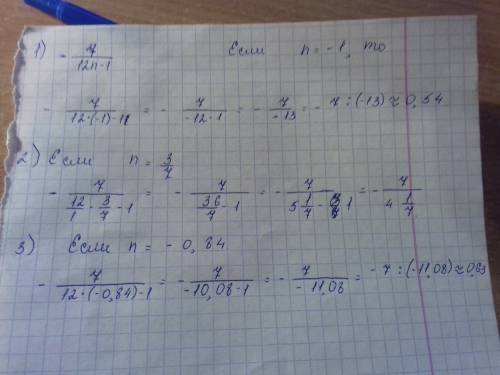 1) - 7/(12n-1) Если n = -1, то
- 7/(12·(-1)-1) = - 7/(-12-1) = - 7/(-13) = - 7 : (-13) ≈ 0,54
2) Если n = 3/7
- 7/(12/1 · 3/7 - 1) = - 7/(36/7 - 1) = - 7/(5 1/7 - 1) = - 7/(4 1/7)
3) Если n = - 0,84
- 7/(12·(-0,84)-1) = - 7/(-10,08-1) = - 7/(-11,08) = - 7 : (-11,08) ≈ 0,63